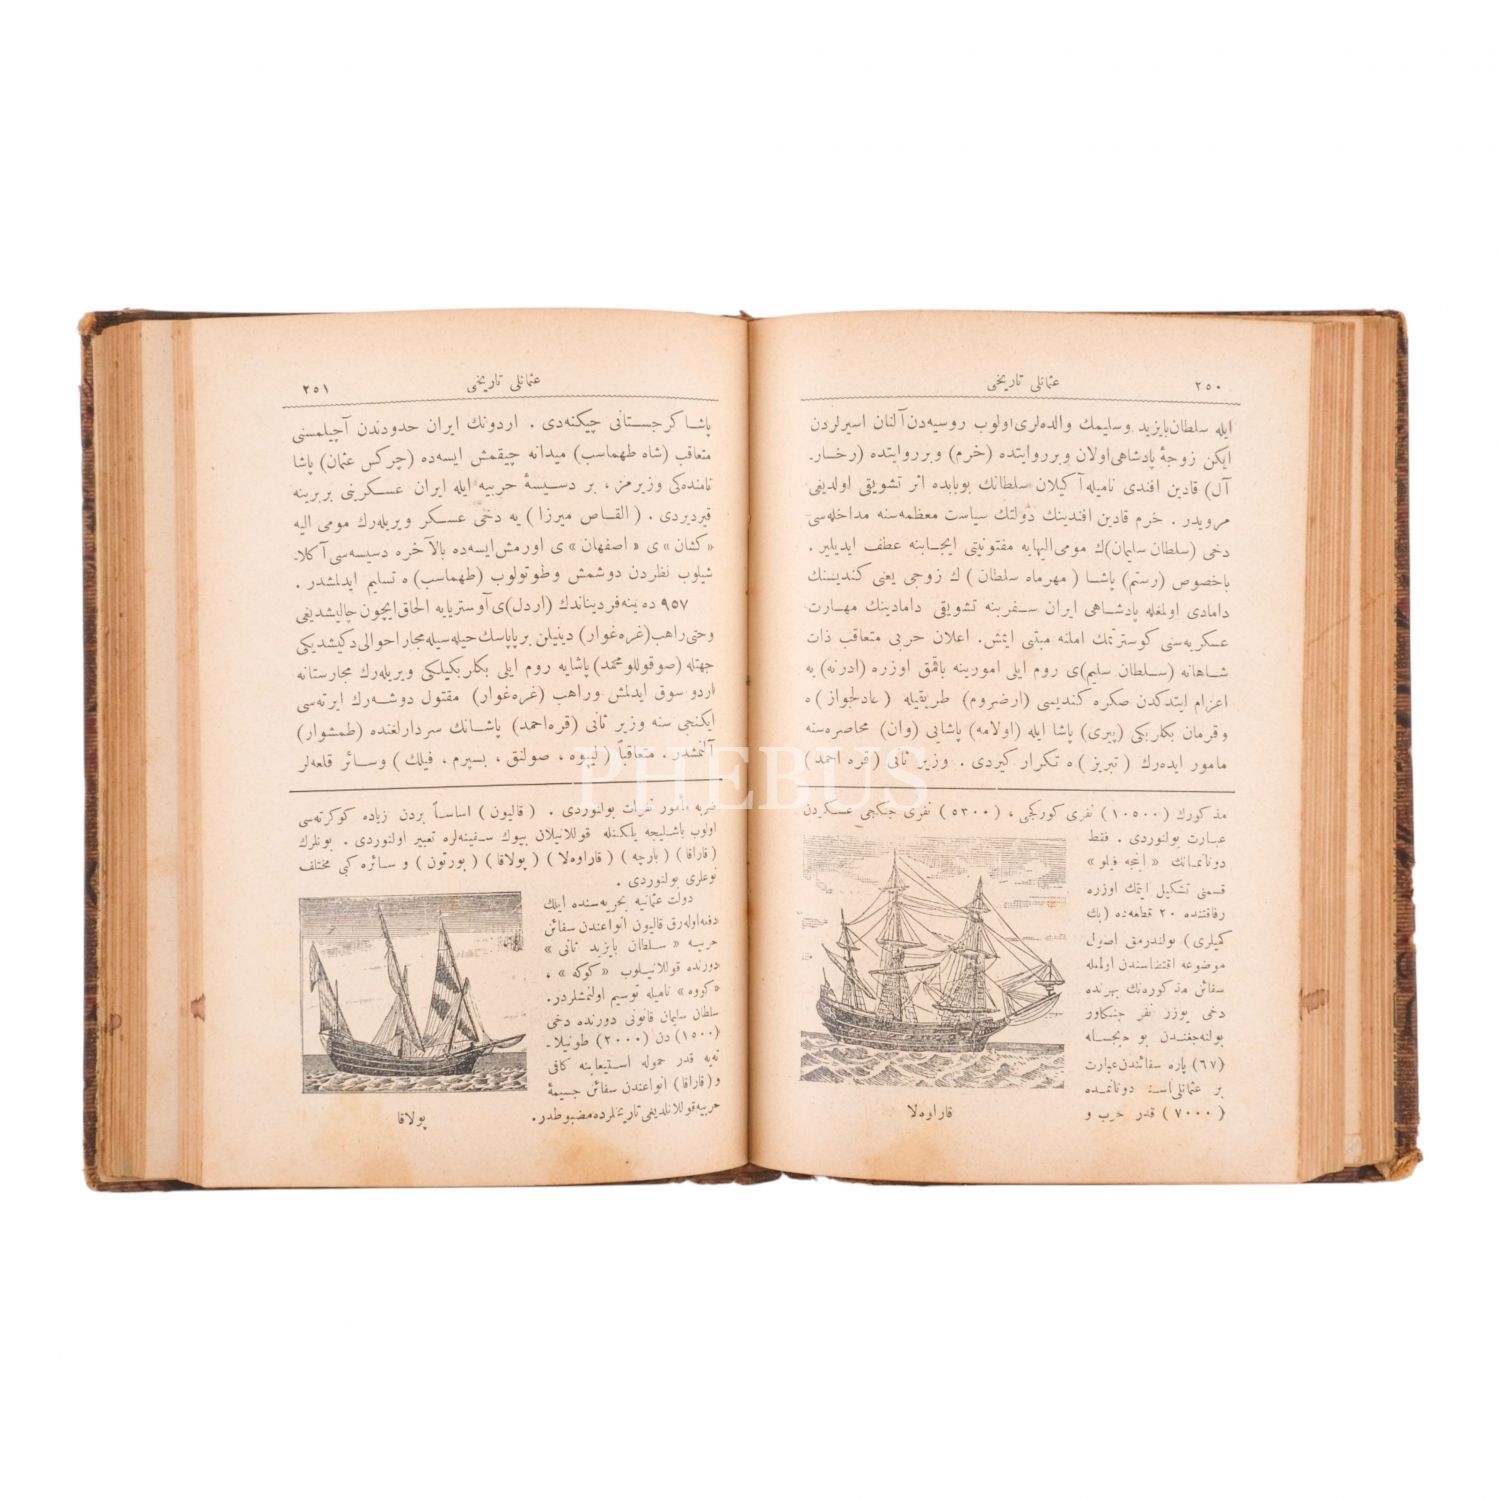 ٢٥٠
عثمانلی تاریخی
ایله سلطان بایزید وسلیمك والده‌لری اولوب روسیه‌دن آلنان اسیرلردن
ایكن زوجهٔ پادشاهی اولان وبر روایتده (خرم) وبر روایتده (رخسار.
آل) قادین افندی نامیله آكیلان سلطانك بوبابده اثر تشویقی اولدیغی
مرویدر . خرم قادین افندینك دولتك سیاست معظمه‌سنه مداخله‌سی
دخی (سلطان سلیمان)ك مومی الیهایه مفتونیتی ایجابنه عطف ایدیلیر .
باخصوص (رستم) پاشا (مهرماه سلطان) ك زوجی یعنی كندیسنك
دامادی اولمغله پادشاهی ایران سفرینه تشویقی دامادینك مهارت
عسكریه‌سنی كوسترتمك املنه مبتنی ایمش. اعلان حربی متعاقب ذات
شاهانه (سلطان سلیم)ی روم ایلی امورینه باقمق اوزره (ادرنه) یه
اعزام ایتدكدن صكره كندیسی (ارضروم) طریقیله (عادلجواز) ه
وقرمان بكلربكی (پیری) پاشا ایله (اولامه) پاشایی (وان) محاصره‌سنه
مأمور ایده‌رك (تبریز) ه تكرار كیردی . وزیر ثانی (قره احمد)
مذكورك (١٠٥٠٠) نفری كوركجی ، (٥٣٠٠) نفری جنكجی عسكردن
عبارت بولنوردی . فقط
دونانمانك « اینجه فیلو »
قسمنی تشكیل ایتمك اوزره
رفاقتنده ٢٠ قطعه‌ده (بك
كمیلری) بولندرمق اصول
موضوعه اقتضاسندن اولمغله
سفائن مذكوره‌نك بهرنده
دخی یوزر نفر جنكاور
بولنه‌جغندن بو حسابله
(٦٧) پاره سفائندن عبارت
بر عثمانلی دونانمه‌سنده
(٧٠٠٠) قدر حرب و
قاراوه‌لا
٢٥١
عثمانلی تاریخی
پاشا كرجستانی چیكنه‌دی . اردونك ایران حدودندن آچیلمسنی
متعاقب (شاه طهماسب) میدانه چیقمش ایسه‌ده (چركس عثمان) پاشا
نامنده‌كی وزیرمز ، بر دسیسهٔ حربیه ایله ایران عسكرینی بربرینه
قیردیردی . (القاص میرزا) یه دخی عسكر ویریله‌رك مومی الیه
«كشان» ی «اصفهان» ی اورمش ایسه‌ده بالآخره دسیسه‌سی آكلا-
شیلوب نظردن دوشمش وطوتولوب (طهماسب) ه تسلیم ایدلمشدر .
٩٥٧ ده ینه فردیناندك (اردل)ی آوستریایه الحاق ایچون چالیشدیغی
وحتی راهب (غره‌غوار) دینیلن بر پاپاسك حیله‌سیله مجار احوالی دكیشدیكی
جهتله (صوقوللو محمد) پاشایه روم ایلی بكلربكیلكی ویریله‌رك مجارستانه
اردو سوق ایدلمش وراهب (غره‌غوار) مقتول دوشه‌رك ایرته‌سی
ایكنجی سنه وزیر ثانی (قره احمد) پاشانك سردارلغنده (طمشوار)
آلنمشدر. متعاقباً (لیپوه ، صولنق ، بسپرم ، فیلك ) وسائر قلعه‌لر
ضربه مأمور نفرات بولنوردی . (قالیون) اساساً بردن زیاده كوكرته‌سی
اولوب باشلیجه یلكنله قوللانیلان بیوك سفینه‌لره تعبیر اولنوردی . بونلرك
(قاراقا) (بارچه) (قاراوه‌لا) (پولاقا) (پورتون) و سائره كبی مختلف
نوعلری بولنوردی .
دولت عثمانیه بحریه‌سنده ایلك
دفعه اوله‌رق قالیون انواعندن سفائن
حربیه «سلطان بایزید ثانی»
دورنده قوللانیلوب «كوكه» ،
«كووه» نامیله توسیم اولنمشلردر.
سلطان سلیمان قانونی دورنده دخی
(١٥٠٠) دن (٢٠٠٠) طونیلا-
ته‌یه قدر حموله استیعابنه كافی
و (قاراقا) انواعندن سفائن جسیمهٔ
حربیه قوللانلدیغی تاریخلرده مضبوطدر.
پولاقا
PHEBUS